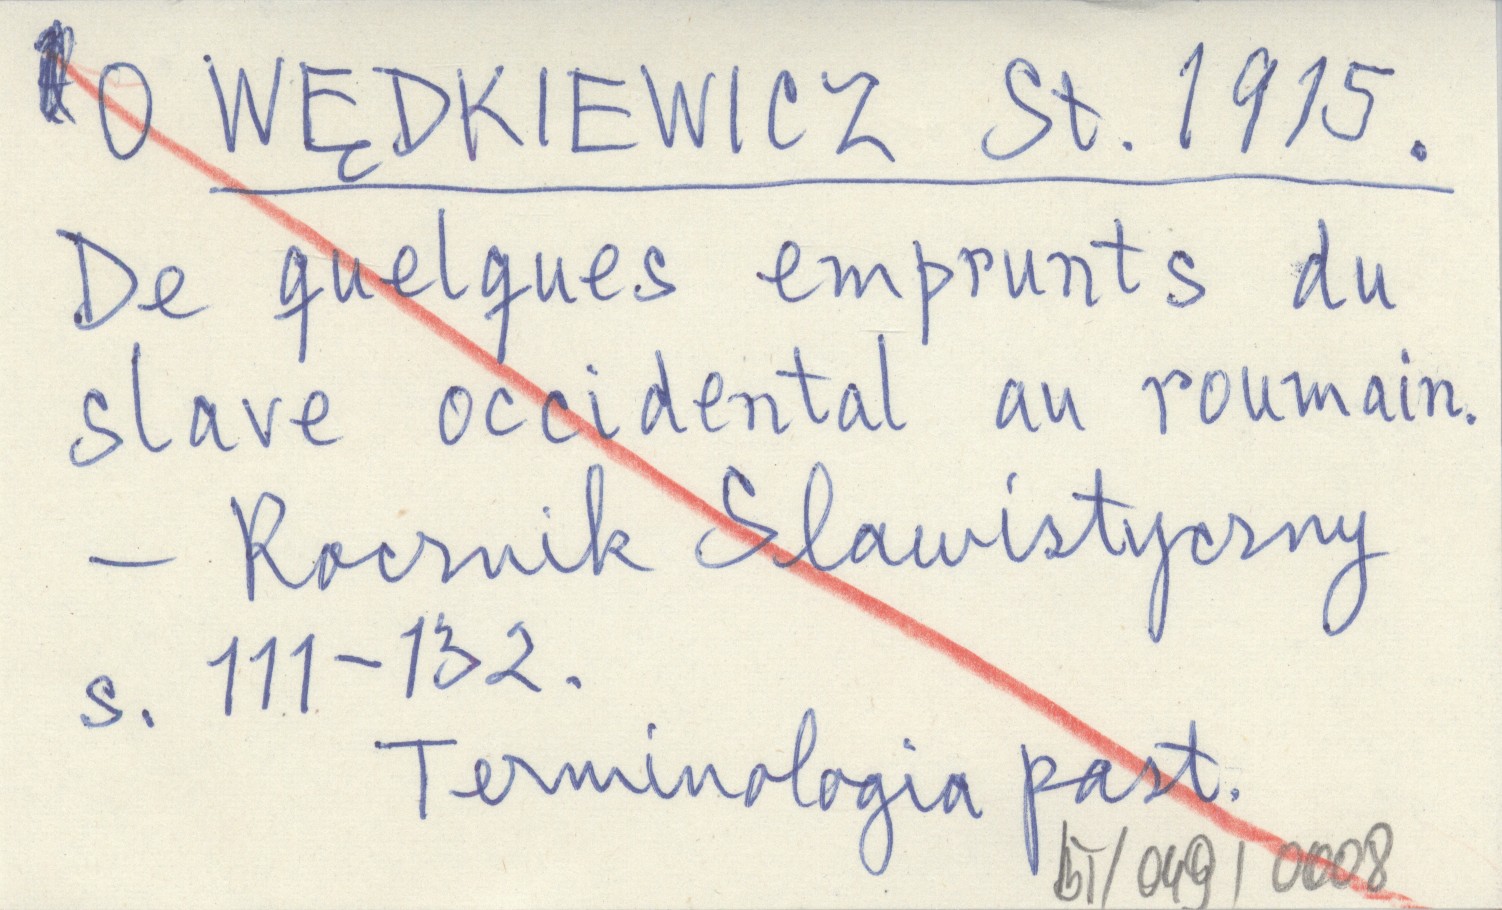 O WĘDKIEWICZ St. 1915.
De quelques emprunts du
slave occidental au roumain.
– Rocznik Slawistyczny
s. 111–132.
Terminologia past.
BT/049/0008